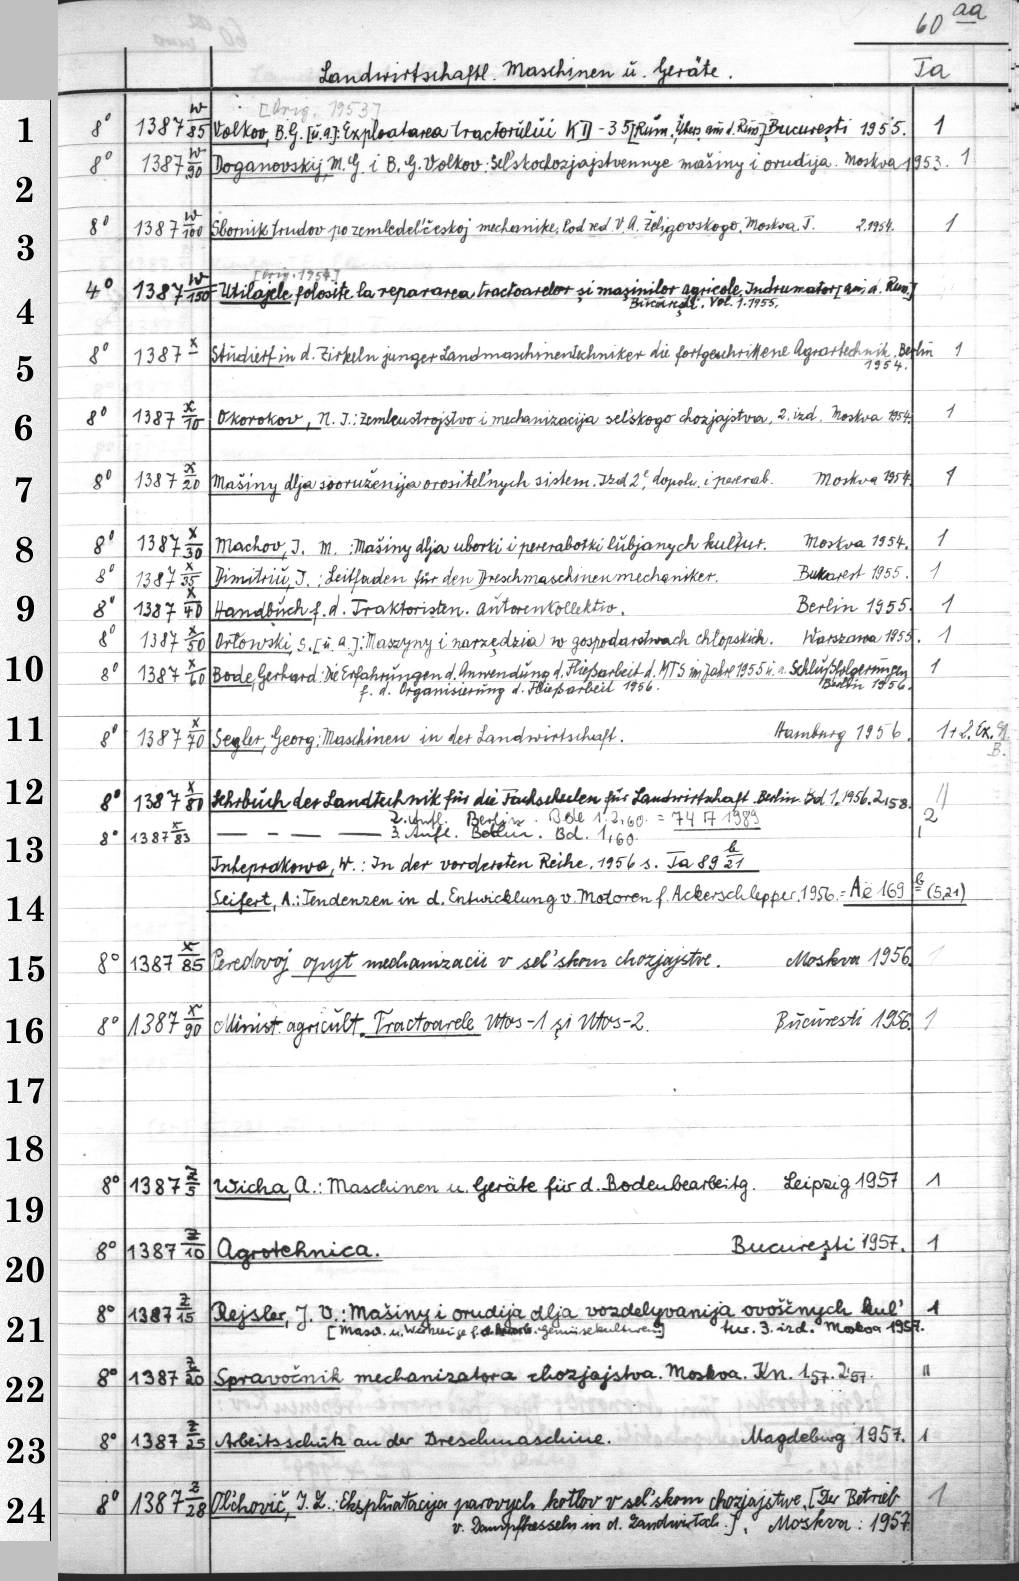 60 aa
Landwirtschaftl. Maschinen u. Geräte. Ta
[Orig. 1953]
1 8° 1387 w/85 Volkov, B.G. [u.a.]: Exploatarea tractorului KD-35 [Rum., Übers. aus d. Russ.] Bucureşti 1955. 1
8° 1387 w/90 Doganovskij, M. G. i B. G. Volkov: Sel'skochozjajstvennye mašiny i orudija. Moskva 1953. 1
2
3 8° 1387 w/100 Sbornik trudov po zemledel'českoj mechanike. Pod red. V. A. Želigovskogo. Moskva. T. 2.1954. 1
[Orig. 1954]
4 4° 1387 w/150 Utilajele folosite la repararea tractoarelor şi maşinilor agricole. Indrumator
Bucureşti. Vol. 1.1955.
5 8° 1387 x Studiert in d. Zirkeln junger Landmaschinentechniker die fortgeschrittene Agrartechnik. Berlin 1
1954.
6 8° 1387 x/10 Okorokov, N. I.: Zemleustrojstvo i mechanizacija sel'skogo chozjajstva. 2. izd. Moskva 1954. 1
7 8° 1387 x/20 Mašiny dlja sooruženija orositel'nych sistem. Izd 2e, dopoln. i pererab. Moskva 1954. 1
8 8° 1387 x/30 Machov, I. M.: Mašiny dlja uborki i pererabotki lubjanych kul'tur. Moskva 1954. 1
8° 1387 x/35 Dimitriu, I.: Leitfaden für den Dreschmaschinenmechaniker. Bukarest 1955. 1
9 8° 1387 x/40 Handbuch f. d. Traktoristen. Autorenkollektiv. Berlin 1955. 1
8° 1387 x/50 Orłowski, S. [u. a.]: Maszyny i narzędzia w gospodarstwach chłopskich. Warszawa 1955. 1
10 8° 1387 x/60 Bode, Gerhard: Die Erfahrungen d. Anwendung d. Fließarbeit d. MTS im Jahre 1955 u. d. Schlußfolgerungen 1
f. d. Organisierung d. Fließarbeit 1956. Berlin 1956.
11 8° 1387 x/70 Segler, Georg: Maschinen in der Landwirtschaft. Hamburg 1956. 1+2. Ex.
B.
12 8° 1387 x/80 Lehrbuch der Landtechnik für die Fachschulen für Landwirtschaft. Berlin. Bd 1.1956. 2,1958. "
2. Aufl. Berlin. Bde 1.2,60. = 74 1989 2
13 8° 1387 x/83 — – — — 3. Aufl. Berlin. Bd. 1,60.
Inheprakowa, W.: In der vordersten Reihe. 1956 s. Ta 89 b/21
14 Seifert, A.: Tendenzen in d. Entwicklung v. Motoren f. Ackerschlepper. 1956. = Aë 169 b (5,21)
15 8° 1387 x/85 Peredovoj opyt mechanizacii v sel'skom chozjajstve. Moskva 1956. 1
16 8° 1387 x/90 Minist. agricult. Tractoarele Utos-1 şi Utos-2. Bucuresti 1956. 1
17
18
19 8° 1387 z/5 Wicha, A.: Maschinen u. Geräte für d. Bodenbearbeitg. Leipzig 1957 1
20 8° 1387 z/10 Agrotehnica. Bucureşti 1957. 1
21 8° 1387 z/15 Rejsler, J. V.: Mašiny i orudija dlja vozdelyvanija ovoščnych kul' 1
[Masch. u. Werkzeuge f. d. Gemüsekulturen] tur. 3. izd. Moskva 1957.
22 8° 1387 z/20 Spravočnik mechanizatora chozjajstva. Moskva. Kn. 1,57. 2,57. "
23 8° 1387 z/25 Arbeitsschutz an der Dreschmaschine. Magdeburg 1957. 1
24 8° 1387 z/28 Ol'chovič, I. Z.: Ekspluatacija parovych kotlov v sel'skom chozjajstve. [Der Betrieb 1
v. Dampfkesseln in d. Landwirtsch.]. Moskva: 1957